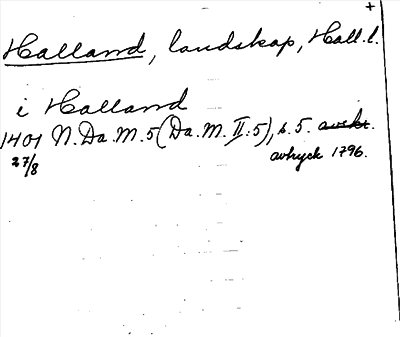 +
Halland, landskap, Hall.l.
i Halland
1401 N.Da.M.5(Da.M.II:5), s.5. avskr.
27/8 avtryck 1796.